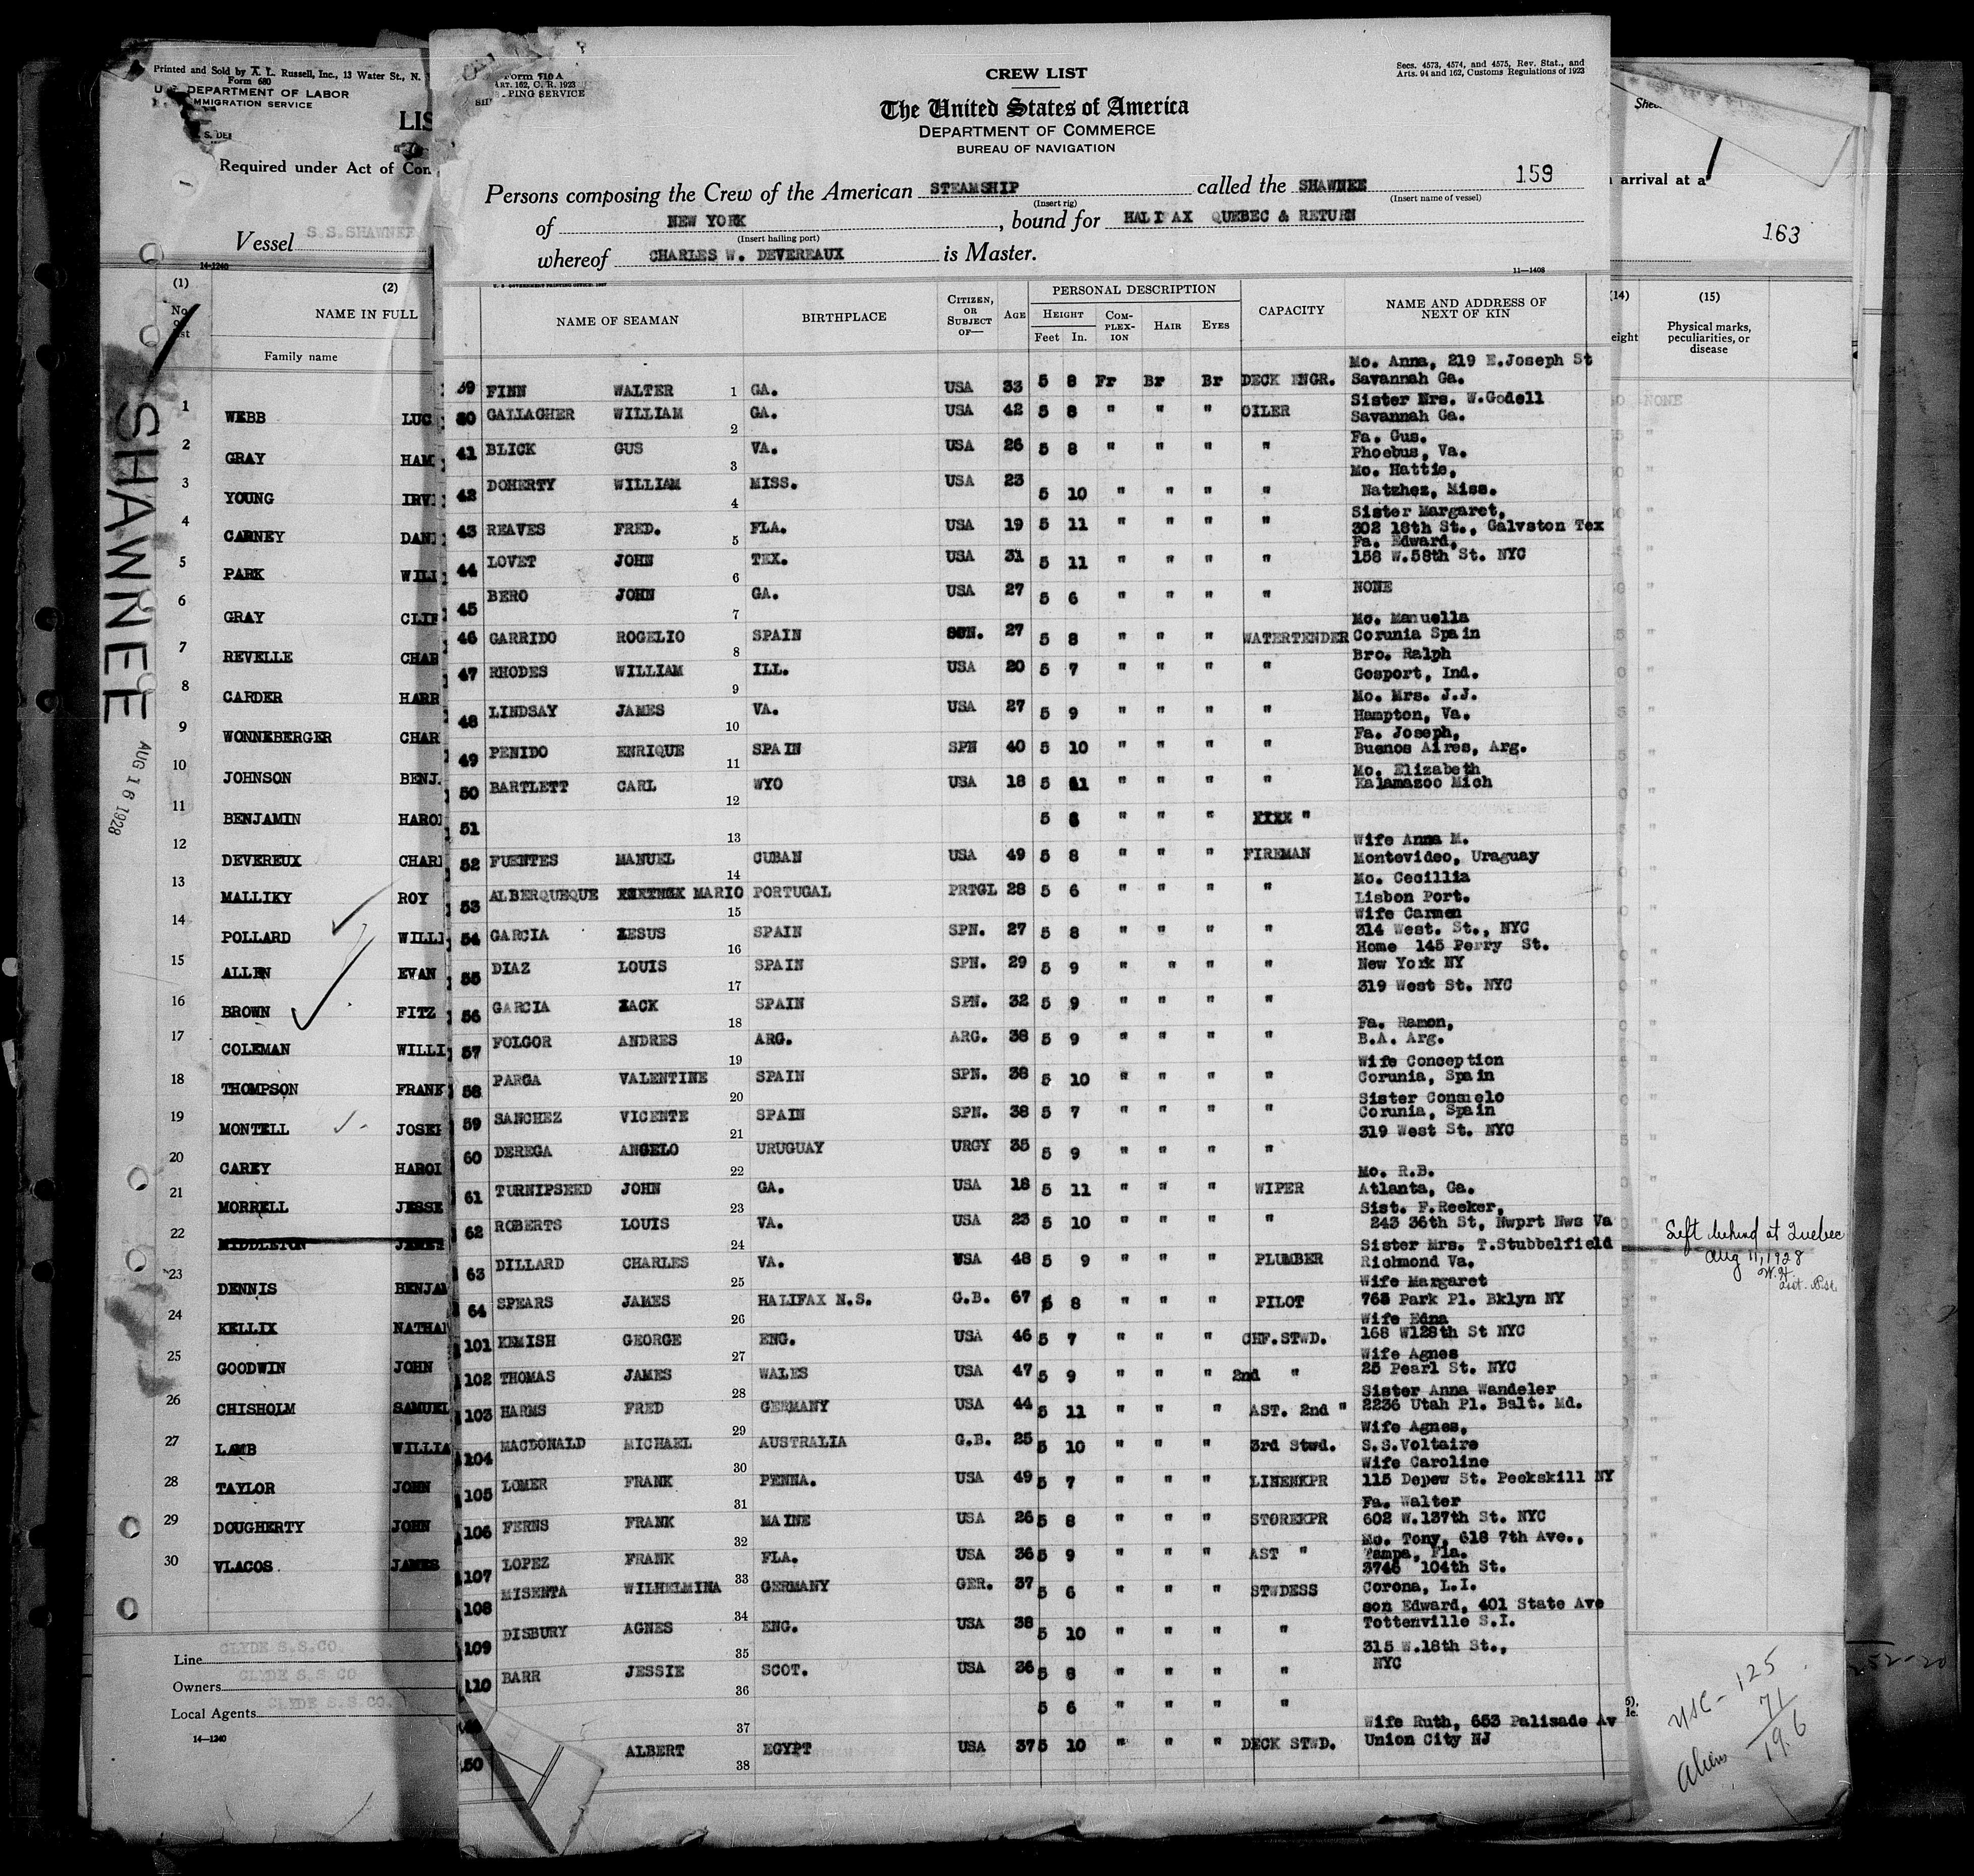 Printed and Sold by A. L. Russell, Inc., 13 Water St., N.
Form 680
DEPARTMENT OF LABOR
IMMIGRATION SERVICE
LIS
Required under Act of Con
Vessel S.S.SHAWNEE
14-1240
(1) (2)
NAME IN FULL
Family name
1 WEBB LUC
2 GRAY HAM
3 YOUNG IRVI
4 CARNEY DANI
5 PARK WILL
6 GRAY CLIF
7 REVELLE CHAR
8 CARDER HARR
9 WONNEBERGER CHAR
10 JOHNSON BENJ.
11 BENJAMIN HAROL
12 DEVEREUX CHARL
13 MALLIKY ROY
14 POLLARD WILLI
15 ALLEN EVAN
16 BROWN FITZ
17 COLEMAN WILLI
18 THOMPSON FRANK
19 MONTELL JOSEP
20 CAREY HAROL
21 MORRELL JESSE
22 MIDDLETON JAMES
23 DENNIS BENJAM
24 KELLIX NATHAN
25 GOODWIN JOHN
26 CHISHOLM SAMUEL
27 LAMB WILLIA
28 TAYLOR JOHN
29 DOUGHERTY JOHN
30 VLACOS JAMES
Line CLYDE S.S.CO.
Owners CLYDE S.S CO
Local Agents CLYDE S.S CO.
14—1240
SHAWNEE
AUG 16 1928
Form 710 A
ART. 162, C. R. 1923
PING SERVICE
CREW LIST
Secs. 4573, 4574, and 4575, Rev. Stat., and
Arts. 94 and 162, Customs Regulations of 1923
The United States of America
DEPARTMENT OF COMMERCE
BUREAU OF NAVIGATION
159
Persons composing the Crew of the American STEAMSHIP called the SHAWNEE
(Insert rig) (Insert name of vessel)
of NEW YORK, bound for HALIFAX QUEBEC & RETURN
(Insert hailing port)
whereof CHARLES W. DEVEREAUX is Master.
11—1408
NAME OF SEAMAN BIRTHPLACE CITIZEN, OR SUBJECT OF— AGE PERSONAL DESCRIPTION CAPACITY NAME AND ADDRESS OF NEXT OF KIN
HEIGHT COMPLEXION HAIR EYES
Feet In.
Mo. Anna, 219 E.Joseph St
39 FINN WALTER 1 GA. USA 33 5 8 Fr Br Br DECK ENGR. Savannah Ga.
Sister Mrs. W.Godell
40 GALLAGHER WILLIAM 2 GA. USA 42 5 8 " " " OILER Savannah Ga.
Fa. Gus.
41 BLICK GUS 3 VA. USA 26 5 8 " " " " Phoebus, Va.
Mo. Hattie,
42 DOHERTY WILLIAM 4 MISS. USA 23 5 10 " " " " Natzhez, Miss.
Sister Margaret,
43 REAVES FRED. 5 FLA. USA 19 5 11 " " " " 302 18th St., Galvston Tex
Fa. Edward,
44 LOVET JOHN 6 TEX. USA 31 5 11 " " " " 158 W.58th St. NYC
45 BERO JOHN 7 GA. USA 27 5 6 " " " " NONE
Mo. Manuella
46 GARRIDO ROGELIO 8 SPAIN SPN. 27 5 8 " " " WATERTENDER Corunia Spain
Bro. Ralph
47 RHODES WILLIAM 9 ILL. USA 20 5 7 " " " " Gosport, Ind.
Mo. Mrs. J.J.
48 LINDSAY JAMES 10 VA. USA 27 5 9 " " " " Hampton, Va.
Fa. Joseph,
49 PENIDO ENRIQUE 11 SPAIN SPN 40 5 10 " " " " Buenos Aires, Arg.
Mo. Elizabeth
50 BARTLETT CARL 12 WYO USA 18 5 11 " " " " Kalamazoo Mich
51 13 5 8 " " " XXXX "
Wife Anna M.
52 FUENTES MANUEL 14 CUBAN USA 49 5 8 " " " FIREMAN Montevideo, Uraguay
Mo. Cecillia
53 ALBERQUEQUE MARIO 15 PORTUGAL PRTGL 28 5 6 " " " " Lisbon Port.
Wife Carmen
54 GARCIA JESUS 16 SPAIN SPN. 27 5 8 " " " " 314 West. St., NYC
Home 145 Perry St.
55 DIAZ LOUIS 17 SPAIN SPN. 29 5 9 " " " " New York NY
319 West St. NYC
56 GARCIA ZACK 18 SPAIN SPN. 32 5 9 " " " "
Fa. Ramon,
57 FOLGOR ANDRES 19 ARG. ARG. 38 5 9 " " " " B.A. Arg.
Wife Conception
58 PARGA VALENTINE 20 SPAIN SPN. 38 5 10 " " " " Corunia, Spain
Sister Consuelo
59 SANCHEZ VICENTE 21 SPAIN SPN. 38 5 7 " " " " Corunia, Spain
319 West St. NYC
60 DEREGA ANGELO 22 URUGUAY URGY 35 5 9 " " " "
Mo. R.B.
61 TURNIPSEED JOHN 23 GA. USA 18 5 11 " " " WIPER Atlanta, Ga.
Sist. F.Reeker,
62 ROBERTS LOUIS 24 VA. USA 23 5 10 " " " " 243 36th St, Nwprt Nws Va
Sister Mrs. T.Stubbelfield
63 DILLARD CHARLES 25 VA. USA 48 5 9 " " " PLUMBER Richmond Va.
Wife Margaret
64 SPEARS JAMES 26 HALIFAX N.S. G.B. 67 5 8 " " " PILOT 763 Park Pl. Bklyn NY
Wife Edna
101 KEMISH GEORGE 27 ENG. USA 46 5 7 " " " CHF.STWD. 168 W128th St NYC
Wife Agnes
102 THOMAS JAMES 28 WALES USA 47 5 9 " " " 2nd " 25 Pearl St. NYC
Sister Anna Wandeler
103 HARMS FRED 29 GERMANY USA 44 5 11 " " " AST. 2nd " 2236 Utah Pl. Balt. Md.
Wife Agnes,
104 MACDONALD MICHAEL 30 AUSTRALIA G.B. 25 5 10 " " " 3rd Stwd. S.S.Voltaire
Wife Caroline
105 LOMER FRANK 31 PENNA. USA 49 5 7 " " " LINENKPR 115 Depew St. Peekskill NY
Fa. Walter
106 FERNS FRANK 32 MAINE USA 26 5 8 " " " STOREKPR 602 W.137th St. NYC
Mo. Tony, 618 7th Ave.,
107 LOPEZ FRANK 33 FLA. USA 36 5 9 " " " AST " Tampa, Fla.
3746 104th St.
108 MISENTA WILHELMINA 34 GERMANY GER. 37 5 6 " " " STWDESS Corona, L.I.
son Edward, 401 State Ave
109 DISBURY AGNES 35 ENG. USA 38 5 10 " " " " Tottenville S.I.
315 W.18th St.,
110 BARR JESSIE 36 SCOT. USA 36 5 8 " " " " NYC
37 5 6 " " " "
Wife Ruth, 653 Palisade Av
150 ALBERT 38 EGYPT USA 37 5 10 " " " DECK STWD. Union City NJ
arrival at a
163
(14) (15)
eight Physical marks, peculiarities, or disease
NONE
Left behind at Quebec
Aug 11, 1928
W.H.
USC - 125
Aliens 71
196
252-20